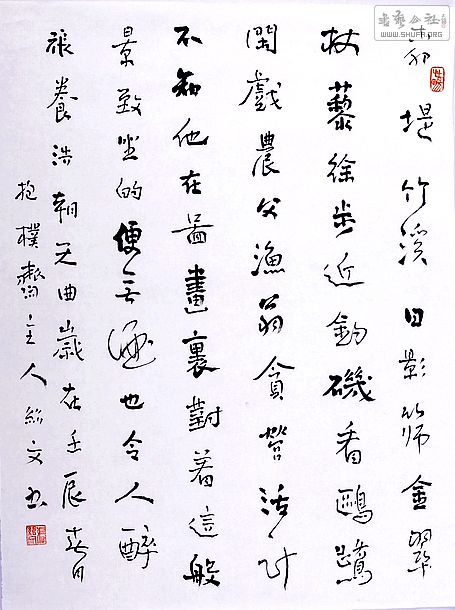 柳堤竹溪日影篩金翠
杖藜徐步近釣磯看鷗鷺
閒戲農父漁翁貪營活計
不知他在啚畫裏對着這般
景致坐的便無酒也令人醉
張養浩朝天曲歲在壬辰春月
抱樸齋主人絲文书
WWW.SHUFA.ORG